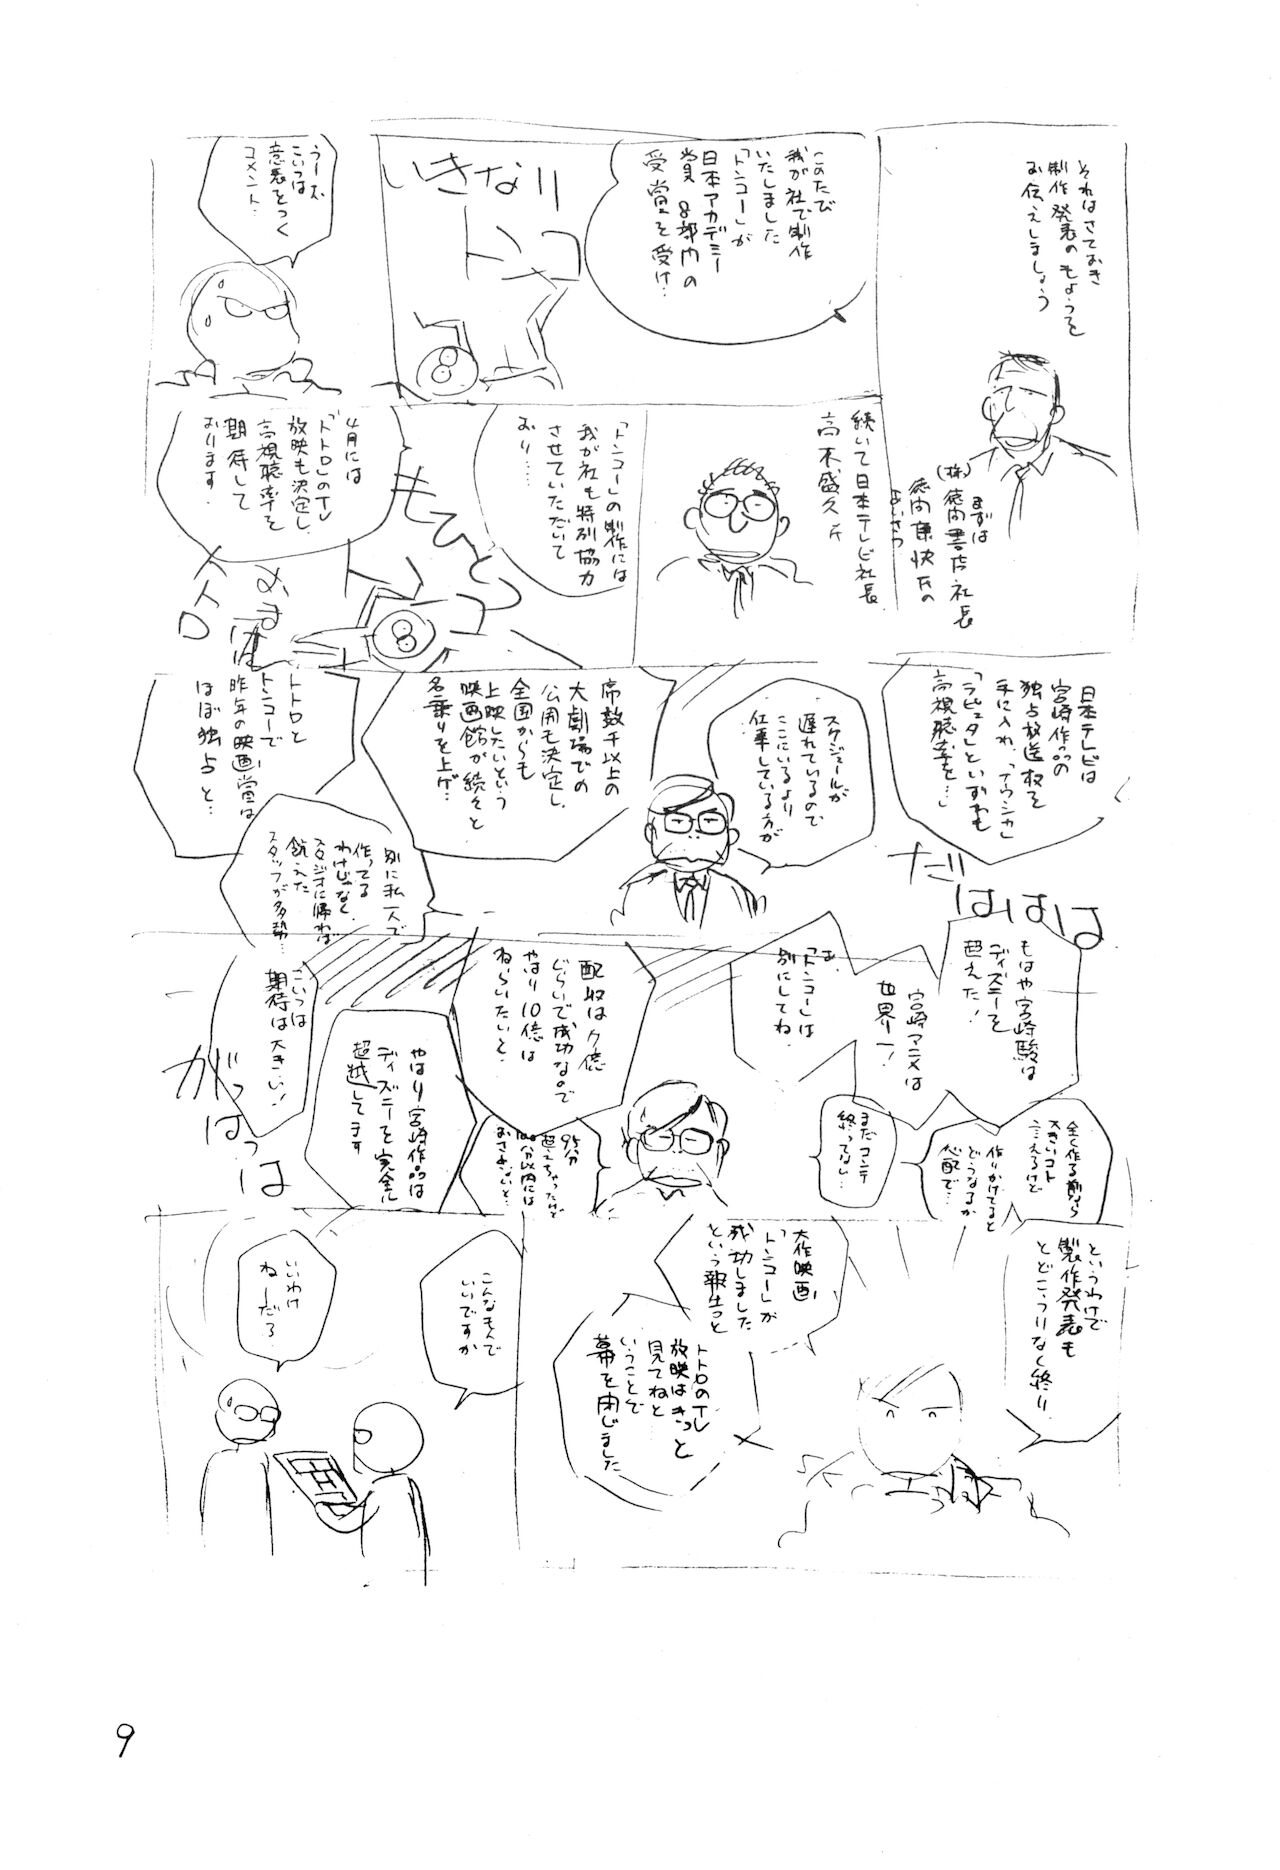 それはさておき
制作発表のもようを
お伝えしましょう
まずは
(株)徳間書店社長
徳間康快氏の
あいさつ
このたび
我が社で制作
いたしました
「トンコー」が
日本アカデミー
賞8部門の
受賞を受け…
いきなり
トンコー
うーむ
こいつは
意表をつく
コメント…
続いて日本テレビ社長
高木盛久氏
「トンコー」の制作には
我が社も特別協力
させていただいて
おり……
もひとつ
トンコー
4月には
「トトロ」のTV
放映も決定し、
高視聴率を
期待して
おります.
おまけ
トトロ
日本テレビは
宮崎作品の
独占放送権を
手に入れ、「ナウシカ」
「ラピュタ」といずれも
高視聴率を…
だははは
スケジュールが
遅れているので
ここにいるより
仕事している方が
席数千以上の
大劇場での
公開も決定し、
全国からも
上映したいという
映画館が続々と
名乗りを上げ…
トトロと
トンコーで
昨年の映画賞は
ほぼ独占と…
別に私一人で
作ってる
わけじゃなく、
スタジオに帰れば
飢えた
スタッフが多勢…
もはや宮崎駿は
ディズニーを
超えた!
宮崎アニメは
世界一!
ま、
「トンコー」は
別にしてね.
全く作る前なら
大きいコト
言えるけど
作りかけてると
どうなるか
心配で…
まだコンテ
終ってない…
配収は7億
ぐらいで成功なので
やはり10億は
ねらいたいと.
95分
超えちゃったけど
100分以内には
おさめないと…
やはり宮崎作品は
ディズニーを完全に
超越してます
こいつは
期待は大きい!
がっはっは
というわけで
製作発表も
とどこおりなく終り、
大作映画
「トンコー」が
成功しました
という報告と
トトロのTV
放映はきっと
見てねと
いうことで
幕を閉じました
こんなもんで
いいですか
いいわけ
ねーだろ
9